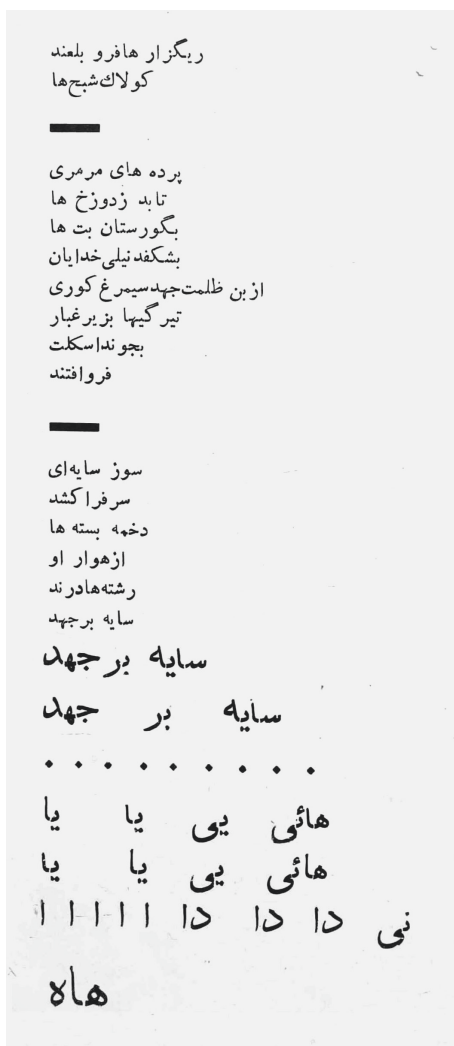 ریگزار هافرو بلعند
کولاك‌شبح‌ها
پرده های مرمری
تابد زدوزخ ها
بگورستان بت ها
بشکفدنیلی‌خدایان
ازبن ظلمت‌جهدسیمرغ‌کوری
تیرگیها بزیرغبار
بجونداسکلت
فروافتند
سوز سایه‌ای
سرفراکشد
دخمه بسته ها
ازهوار او
رشته‌هادرند
سایه برجهد
سایه برجهد
سایه بر جهد
. . . . . . . . .
هائی یی یا یا
هائی یی یا یا
نی دا دا دا ا ا ا ا ا
هاه